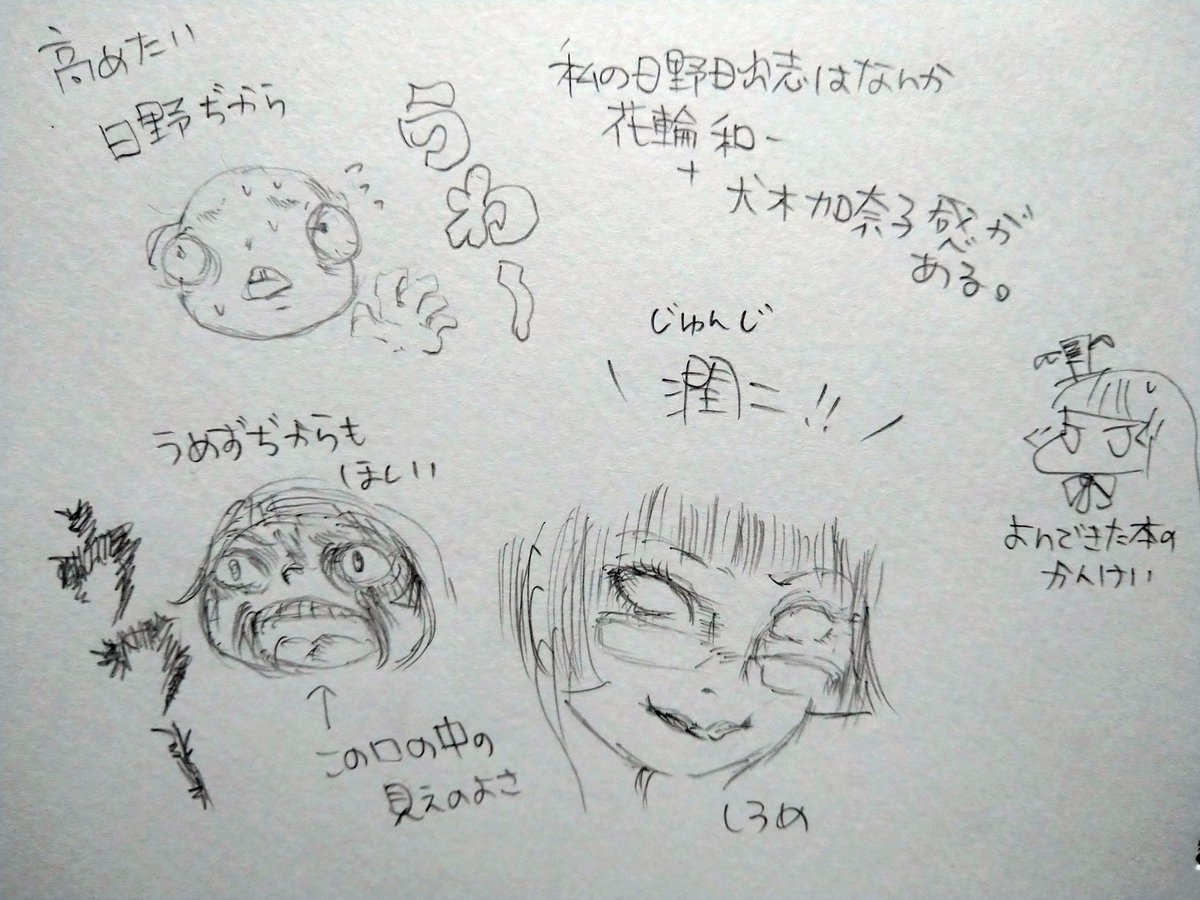 高めたい
日野ぢから
うわー
私の日野日出志はなんか
花輪和一
+
犬木加奈子感が
ある。
じゅんじ
潤二!!
うめずぢからも
ほしい
よんできた本の
かんけい
この口の中の
見えのよさ
しろめ